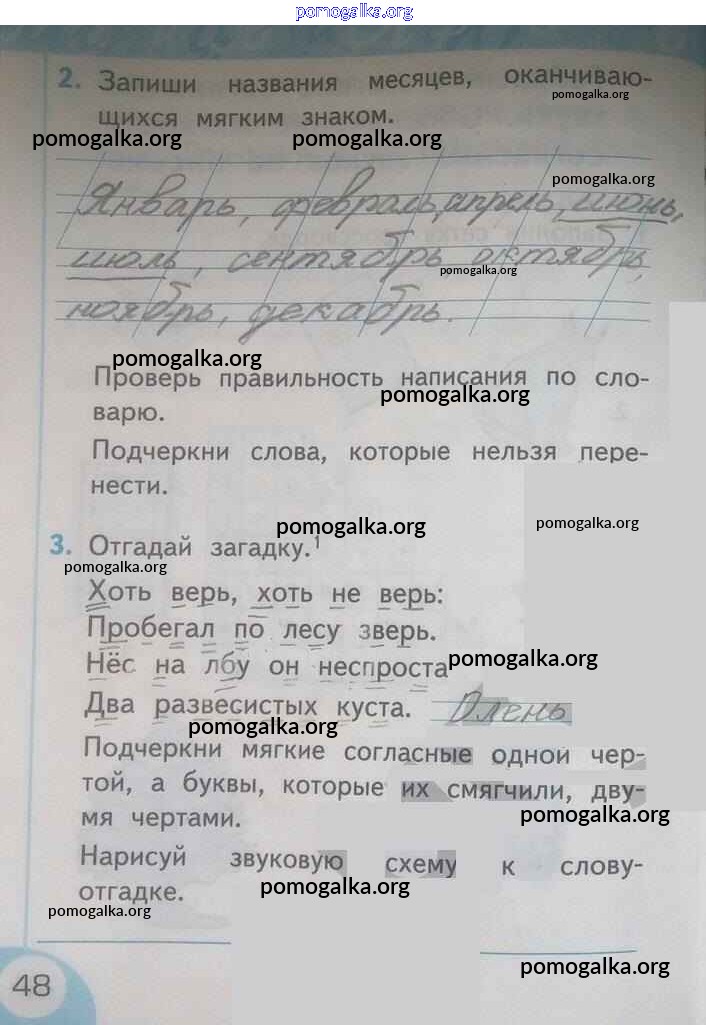 pomogalka.org
2. Запиши названия месяцев, оканчиваю-
pomogalka.org
щихся мягким знаком.
pomogalka.org pomogalka.org
pomogalka.org
Январь, февраль, апрель, июнь,
июль, сентябрь октябрь,
pomogalka.org
ноябрь, декабрь.
pomogalka.org
Проверь правильность написания по сло-
pomogalka.org
варю.
Подчеркни слова, которые нельзя пере-
нести.
pomogalka.org pomogalka.org
3. Отгадай загадку.¹
pomogalka.org
Хоть верь, хоть не верь:
Пробегал по лесу зверь.
Нёс на лбу он неспроста
pomogalka.org
Два развесистых куста. Олень
pomogalka.org
Подчеркни мягкие согласные одной чер-
той, а буквы, которые их смягчили, дву-
мя чертами.
pomogalka.org
Нарисуй звуковую схему к слову-
отгадке.
pomogalka.org
pomogalka.org
48
pomogalka.org